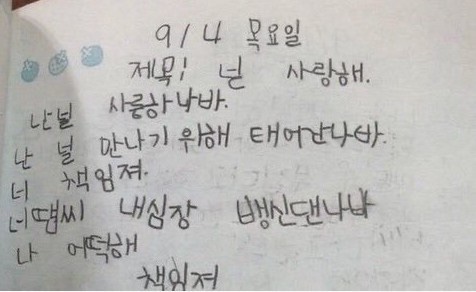 9/4 목요일
제목: 넌 사랑해.
난널 사릉하나바.
난 널 만나기 위해 태어간나바.
너 책임져.
너땸씨 내심장 뱅신댄나바
나 어떡해
책임져